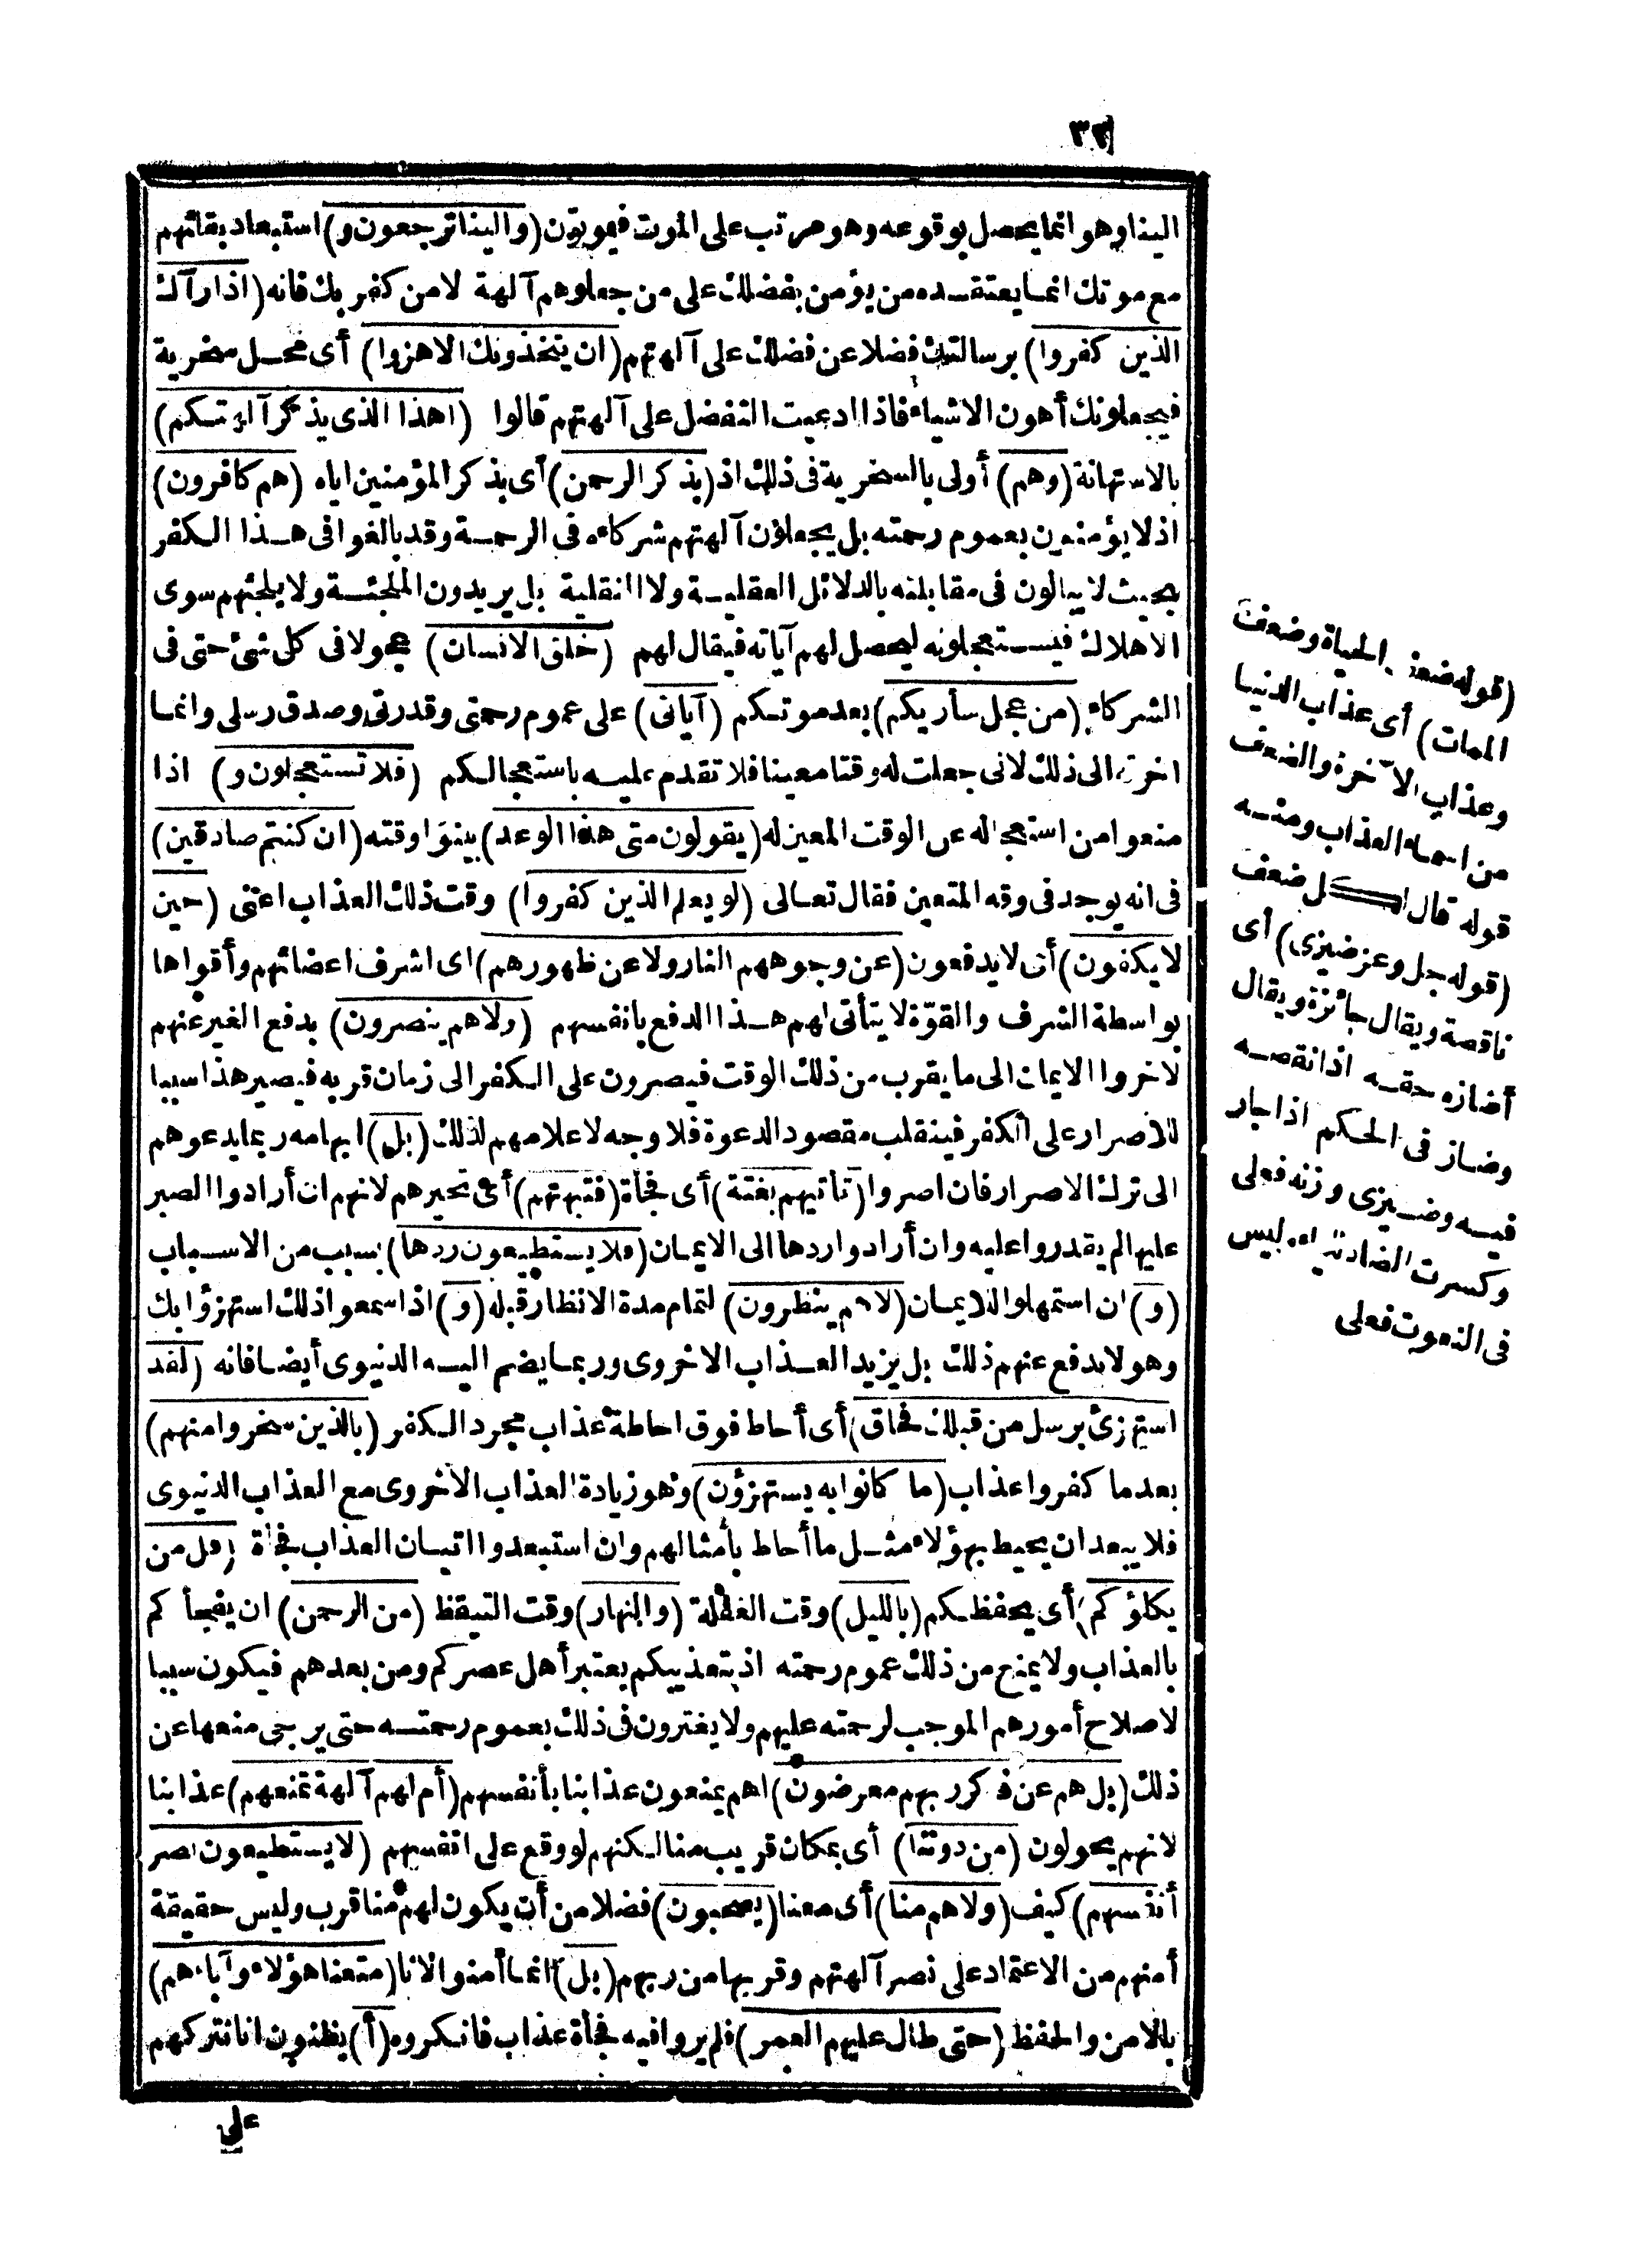 الينا وهو انما يحصل بوقوعه وهو مرتب على الموت فيموتون (والينا ترجعون و) استبعاد بقائهم
مع موتك انما يعتقده من يؤمن بفضلك على من جعلوهم آلهة لا من كفر بك فانه (اذا رآك
الذين كفروا) برسالتك فضلا عن فضلك على آلهتهم (ان يتخذونك الا هزوا) أى محل سخرية
فيجعلونك أهون الاشياء فاذا ادعيت التفضل على آلهتهم قالوا (اهذا الذى يذكر آلهتكم)
بالاستهانة (وهم) أولى بالسخرية فى ذلك اذ (بذكر الرحمن) أى بذكر المؤمنين اياه (هم كافرون)
اذ لا يؤمنون بعموم رحمته بل يجعلون آلهتهم شركاءه فى الرحمة وقد بالغوا فى هذا الكفر
بحيث لا يبالون فى مقابلته بالدلائل العقلية ولا النقلية بل يريدون الملجئة ولا يلجئهم سوى
الاهلاك فيستعجلونه ليحصل لهم آياته فيقال لهم (خلق الانسان) عجولا فى كل شئ حتى فى
الشركاء (من عجل سأريكم) بعد موتكم (آياتى) على عموم رحمتى وقدرتى وصدق رسلى وانما
اخرته الى ذلك لانى جعلت له وقتا معينا فلا تقدم عليه باستعجالكم (فلا تستعجلون و) اذا
منعوا من استعجاله عن الوقت المعين له (يقولون متى هذا الوعد) بينوا وقته (ان كنتم صادقين)
فى انه يوجد فى وقه المتعين فقال تعالى (لو يعلم الذين كفروا) وقت ذلك العذاب اعنى (حين
لا يكفون) أى لا يدفعون (عن وجوههم النار ولا عن ظهورهم) اى اشرف اعضائهم وأقواها
بواسطة الشرف والقوّة لا يتأتى لهم هذا الدفع بانفسهم (ولا هم ينصرون) بدفع الغير عنهم
لاخروا الايمان الى ما يقرب من ذلك الوقت فيصرون على الكفر الى زمان قربه فيصير هذا سببا
للاصرار على الكفر فينقلب مقصود الدعوة فلا وجه لاعلامهم لذلك (بل) ابهامه ربما يدعوهم
الى ترك الاصرار فان اصروا (تاتيهم بغتة) أى فجأة (فتبهتهم) أى تحيرهم لانهم ان أرادوا الصبر
عليها لم يقدروا عليه وان أرادوا ردها الى الايمان (فلا يستطيعون ردها) بسبب من الاسباب
(و) ان استمهلوا للايمان (لا هم ينظرون) لتمام مدة الانظار قبله (و) اذا سمعوا ذلك استهزؤا بك
وهو لا يدفع عنهم ذلك بل يزيد العذاب الاخروى وربما يضم اليه الدنيوى أيضا فانه (لقد
استهزئ برسل من قبلك فحاق) أى أحاط فوق احاطة عذاب مجرد الكفر (بالذين سخروا منهم)
بعد ما كفروا عذاب (ما كانوا به يستهزؤن) وهو زيادة العذاب الاخروى مع العذاب الدنيوى
فلا يبعد ان يحيط بهؤلاء مثل ما أحاط بأمثالهم وان استبعدوا اتيان العذاب فجأة (قل من
يكلؤكم) أى يحفظكم (بالليل) وقت الغفلة (والنهار) وقت التيقظ (من الرحمن) ان يفجأكم
بالعذاب ولا يمنع من ذلك عموم رحمته اذ بتعذيبكم يعتبر أهل عصركم ومن بعدهم فيكون سببا
لاصلاح أمورهم الموجب لرحمته عليهم ولا يغترون فى ذلك بعموم رحمته حتى يرجى منعها عن
ذلك (بل هم عن ذكر ربهم معرضون) اهم يمنعون عذابنا بأنفسهم (أم لهم آلهة تمنعهم) عذابنا
لانهم يحولون (من دوننا) أى بمكان قريب منا لكنهم لو وقع على انفسهم (لا يستطيعون نصر
أنفسهم) كيف (ولا هم منا) أى معنا (يصحبون) فضلا من أن يكون لهم منا قرب وليس حقيقة
أمنهم من الاعتماد على نصر آلهتهم وقربها من ربهم (بل) انما أمنوا لانا (متعنا هؤلاء وآباءهم)
بالامن والحفظ (حتى طال عليهم العمر) فلم يروا فيه فجأة عذاب فانكروه (أ) يظنون انا نتركهم
على
(قوله ضعف الحياة وضعف
الممات) أى عذاب الدنيا
وعذاب الآخرة والضعف
من اسماء العذاب ومنه
قوله قال لكل ضعف
(قوله جل وعز ضيزى) أى
ناقصة ويقال جائزة ويقال
أضازه حقه اذا نقصه
وضاز فى الحكم اذا جار
فيه وضيزى وزنه فعلى
وكسرت الضاد لليا وليس
فى النعوت فعلى